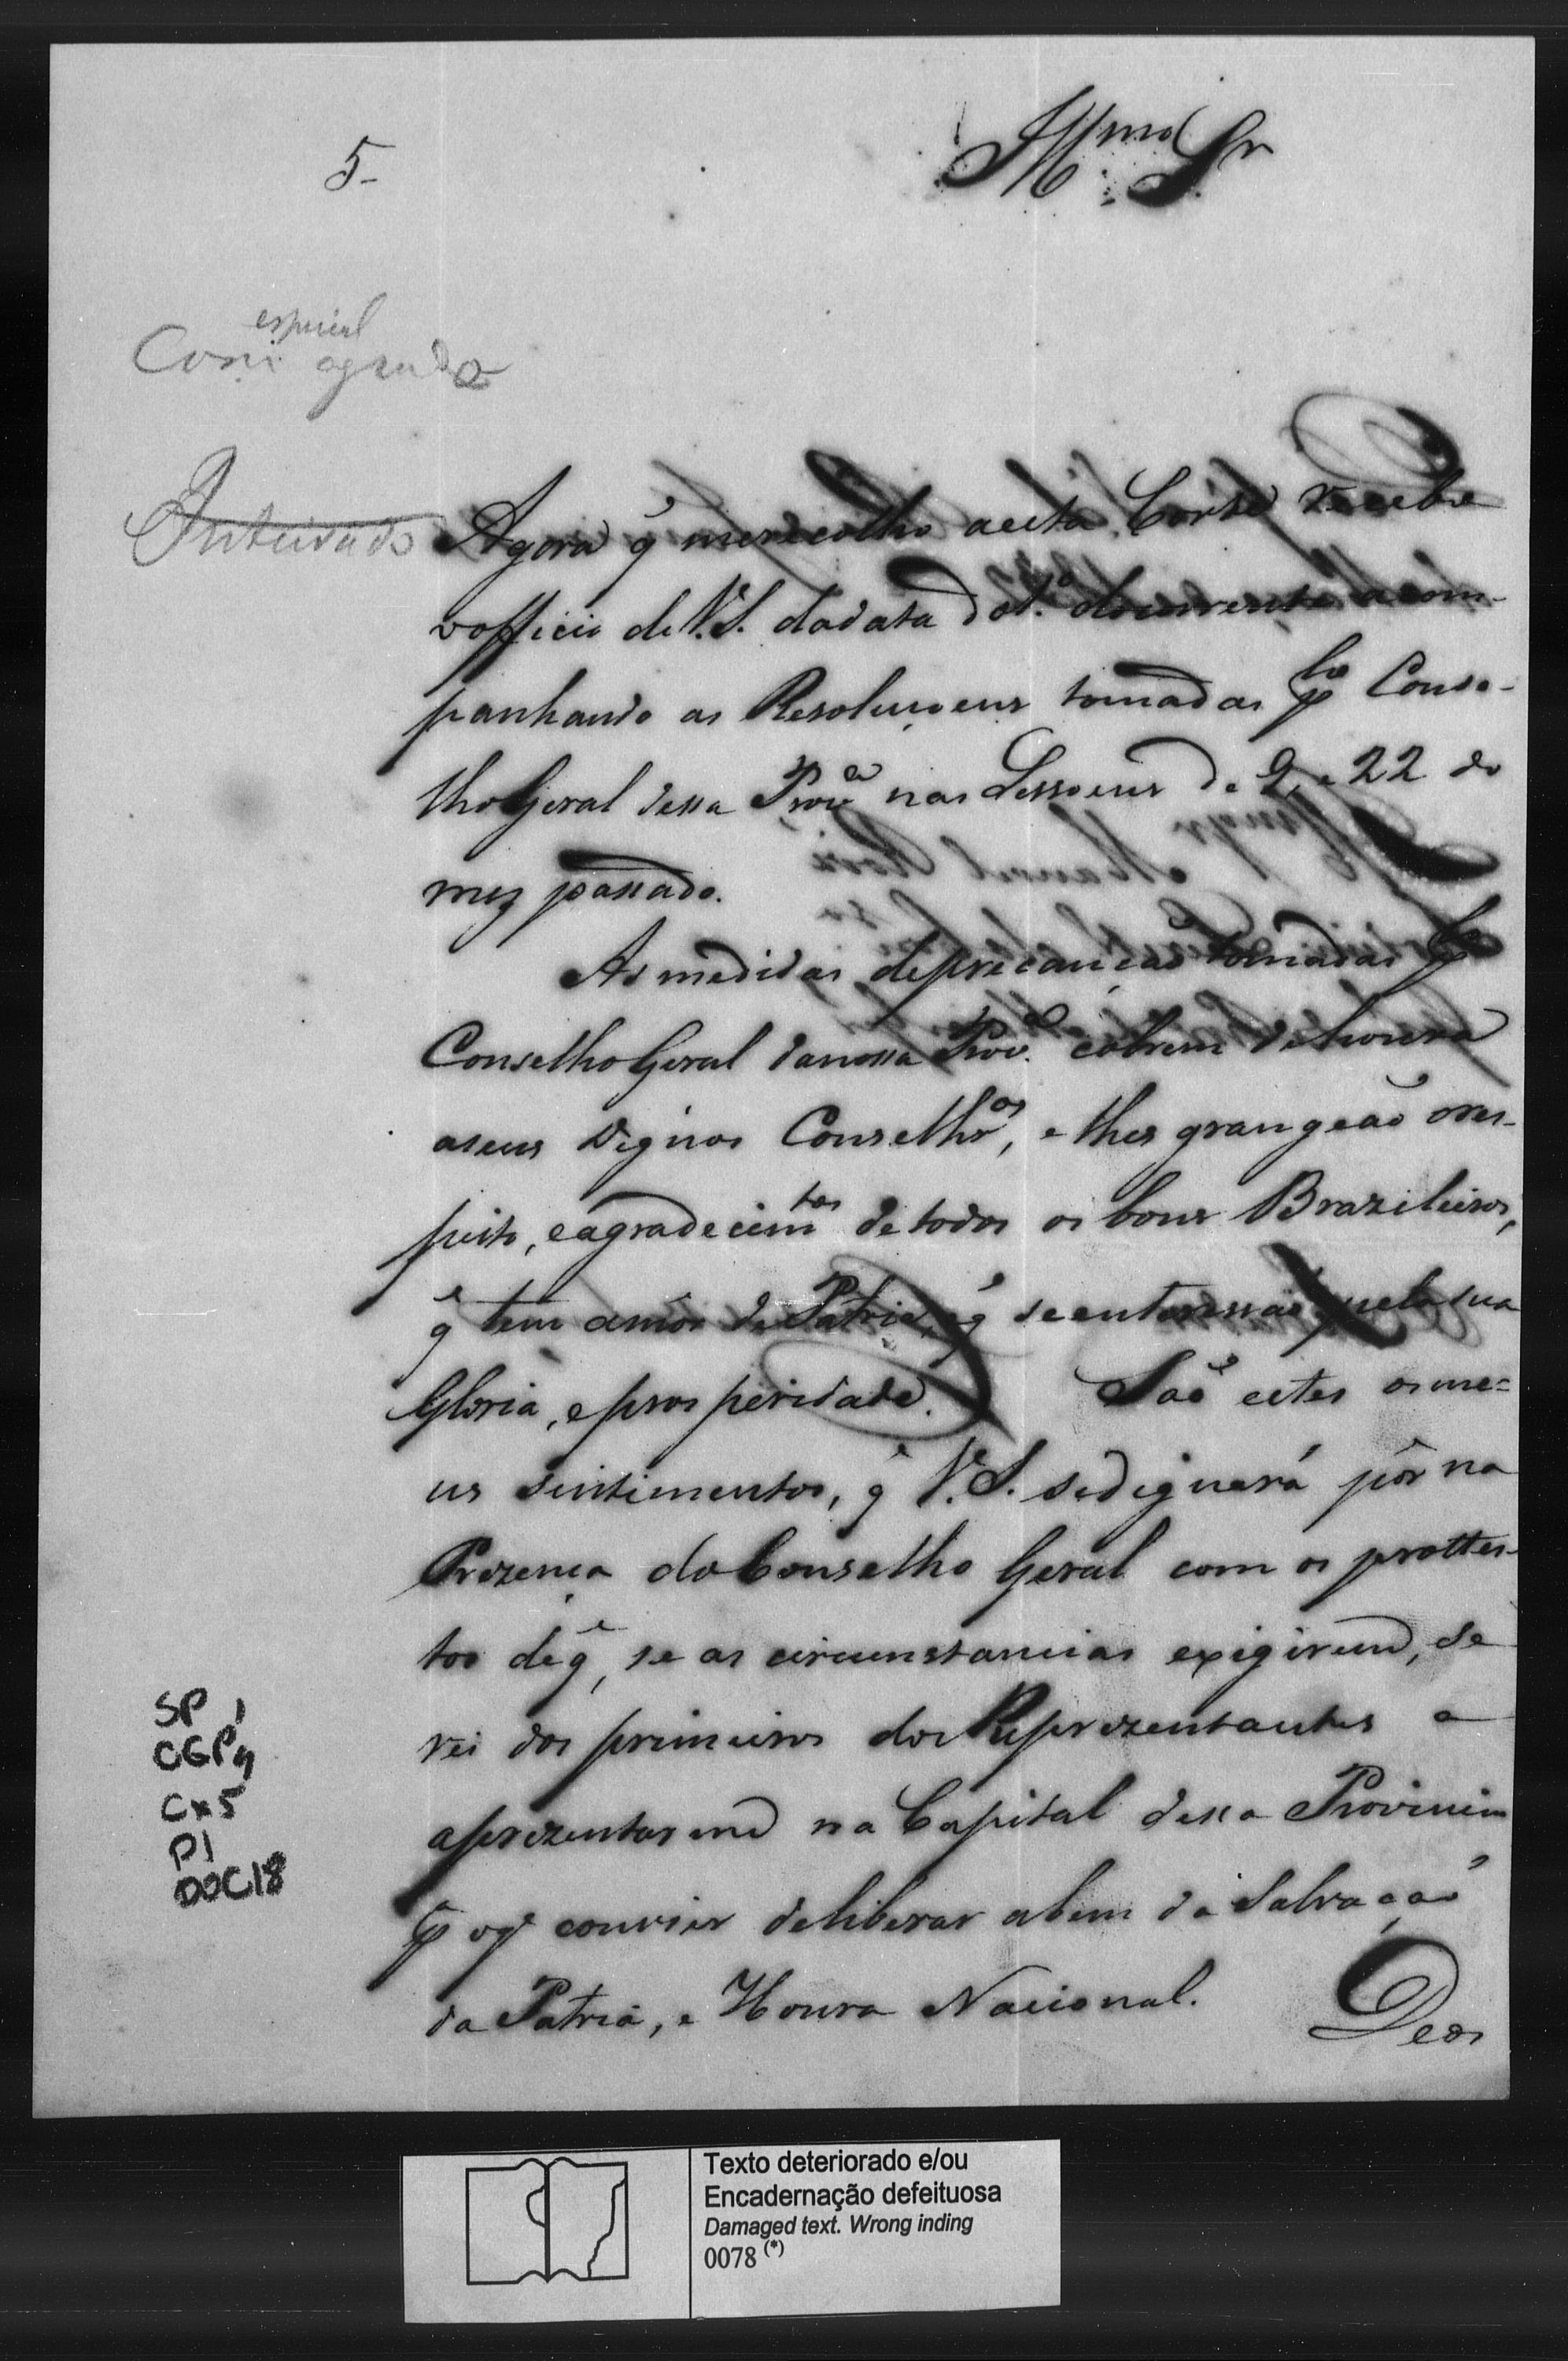 5-
Illmo Sr
especial
Com agrado
Inteirado
Agora q̃ merecolho aesta Corte recebo
ooffício de V.S. dadata do 1.º docorrente acom-
panhando as Resoluçoens tomadas plo Conse-
lho Geral dessa Prov.ª nas Sessoens de 9, e 22 do
mez passado.
As medidas deprecauçaõ tomadas plo
Conselho Geral danossa Prov.ª cobrem dehonra
aseus Dignos Conselhros, e lhes grangeaõ ores-
peito, eagradecimtos de todos os bons Brazileiros,
q̃ tem amôr da Patria, e q̃ seenteressaõ pela sua
Gloria, e prosperidade. Saõ estes osme=
us sentimentos, q̃ V.S. sedignará pôr na
Prezença do Conselho Geral com os prottes-
tos deq̃, se as circunstancias exigirem, Se
rei dos primeiros dos Reprezentantes a
aprezentarme na Capital dessa Provincia
pª oq̃ convier deliberar abem da Salvaçaõ
da Patria, e Honra Nacional. Deos
SP
CGP4
Cx5
P1
DOC18
Texto deteriorado e/ou
Encadernação defeituosa
Damaged text. Wrong inding
0078 (*)